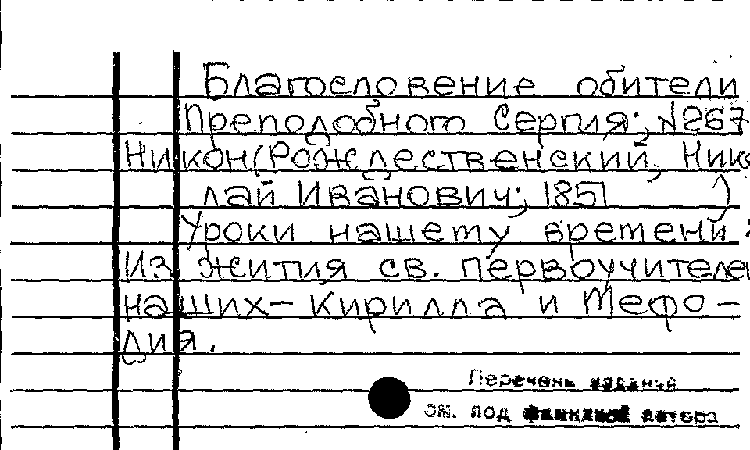 Благословение обители
Преподобного Сергия; №267
Никон (Рождественский, Нико
лай Иванович; 1851 )
Уроки нашему времени:
Из жития св. первоучителей
наших – Кирилла и Мефо-
дия.
Перечень изданий
см. под фамилией автора